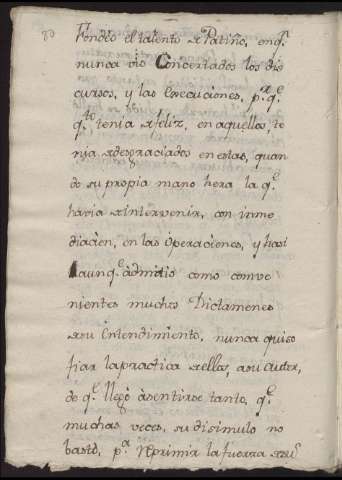 Fondeò el talento de Patiño, en q.
nunca vio Concertados los dis
cursos, y las Execuciones, p.r q.e
q.to tenia de feliz, en aquellos, te
nia de desgraciados en estas, quan
do su propia mano hera la q.e
havia de intervenir, con inme
diaciòn, en las Operaciones, y hasi
aunq.e àdmitio como combe
nientes muchos Dictamenes
de su Entendimiento, nunca quiso
fiar la practica de ellos, a su Autor,
de q.e llegò à sentirse tanto, q.e
muchas veces, su disimulo no
bastò, p.a Reprimir la fuerza de su